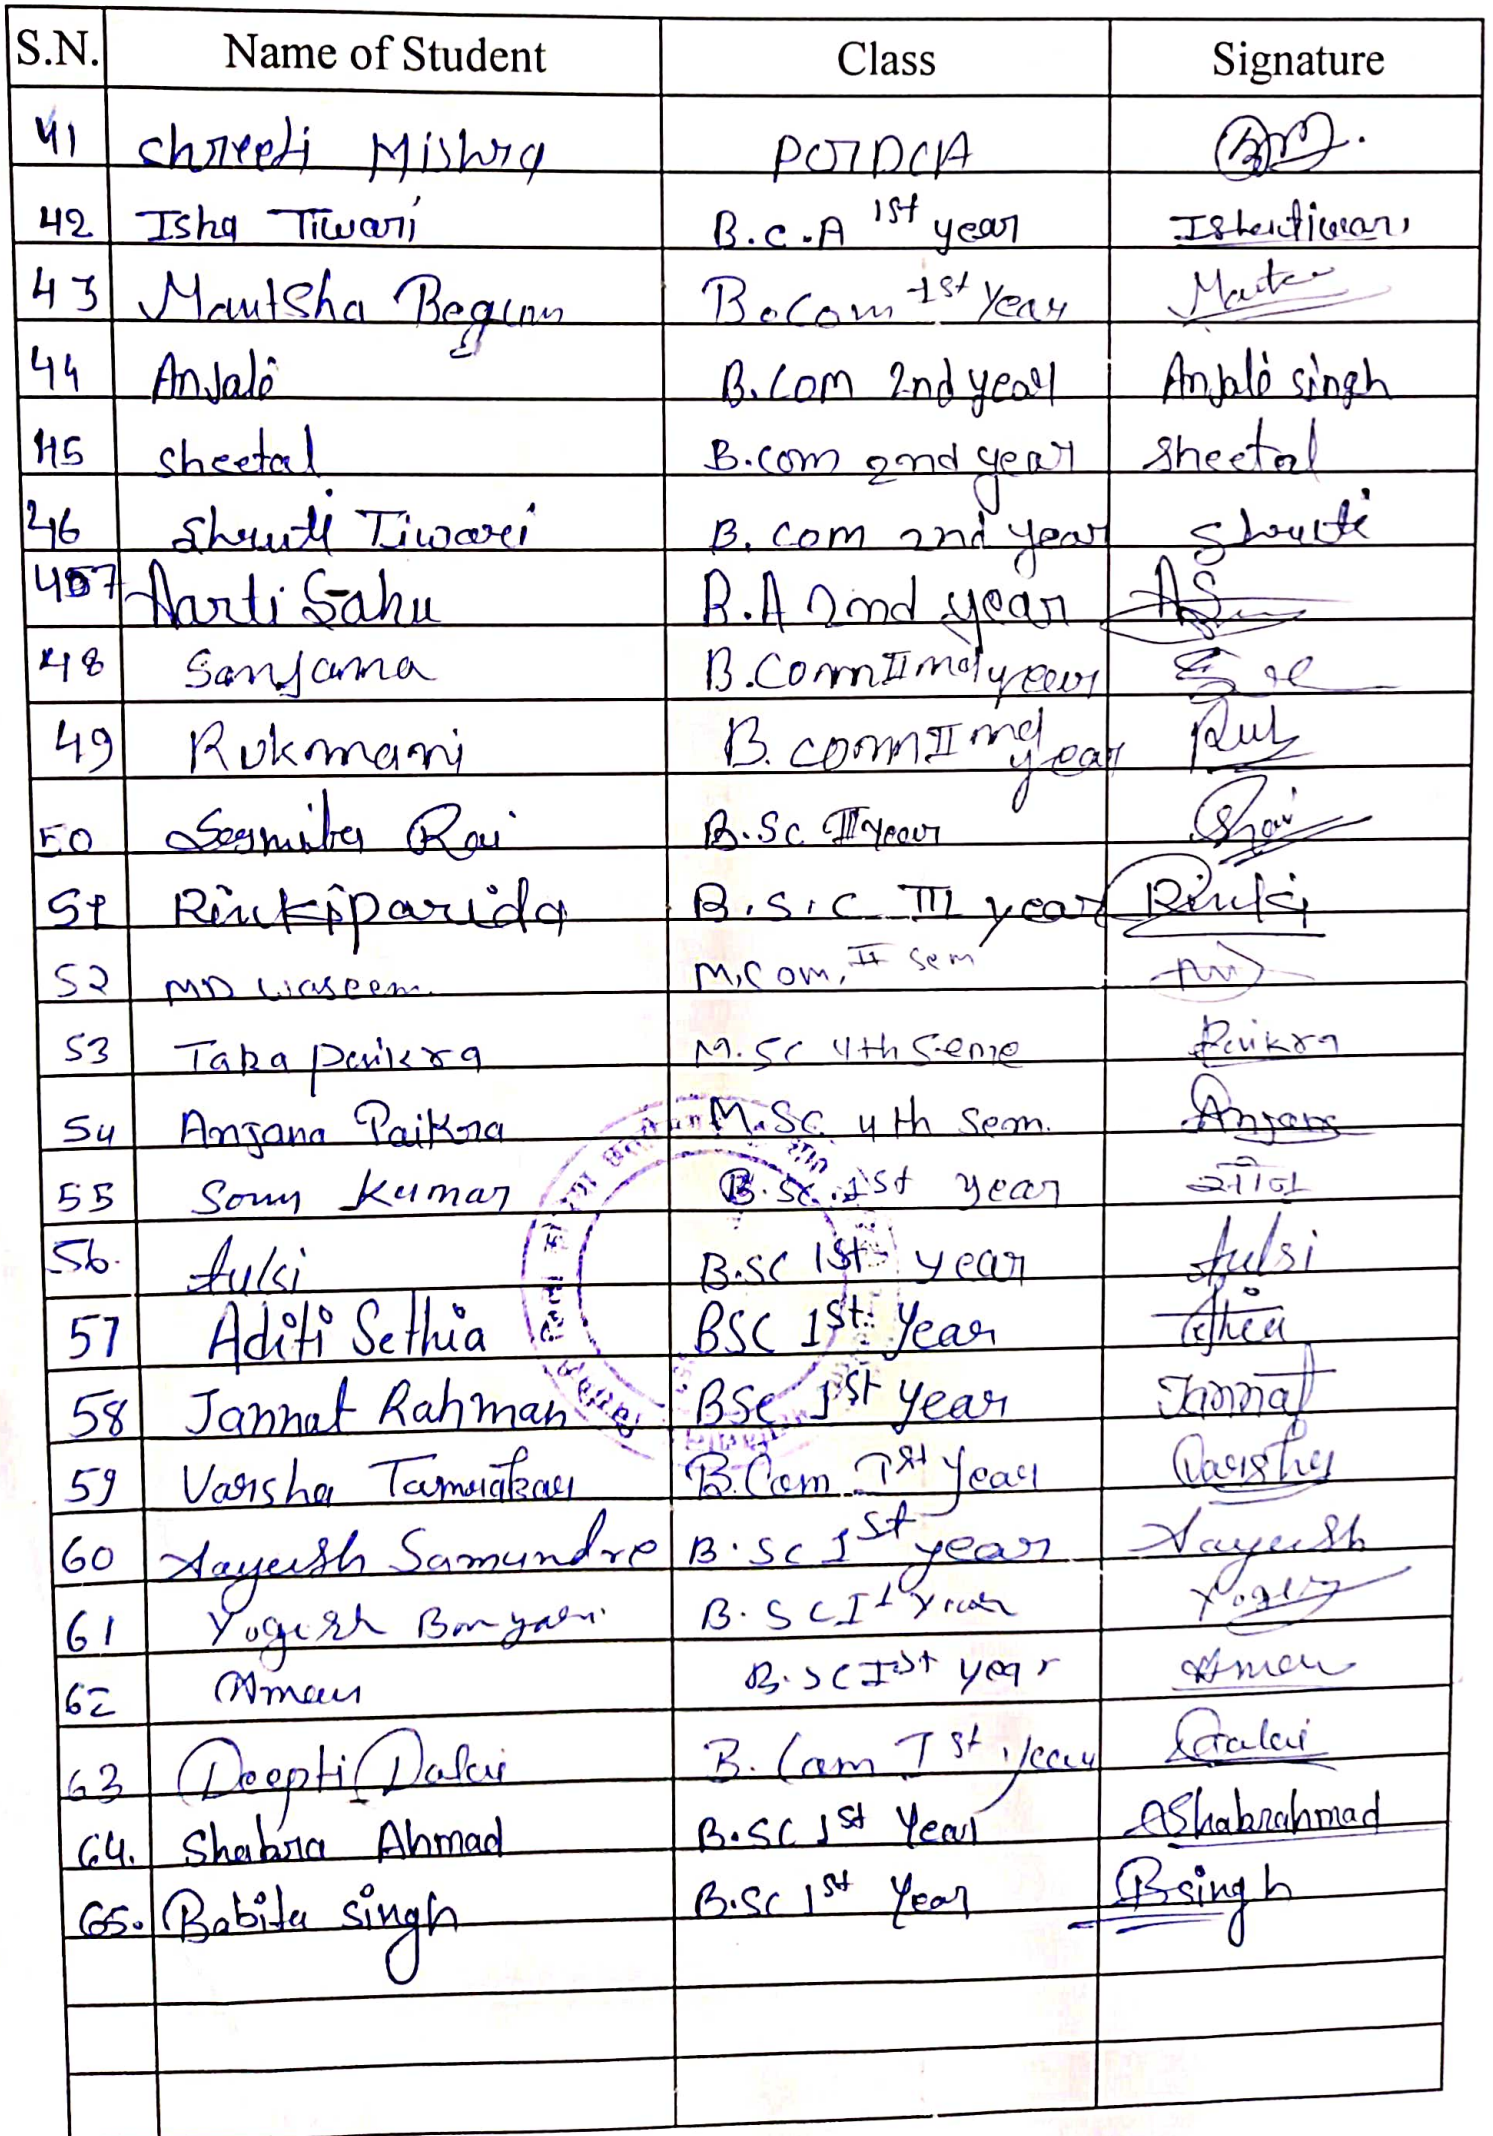 S.N. Name of Student Class Signature
41 Shreeti Mishra PGDCA
42 Isha Tiwari B.C.A 1st year Ishatiwari
43 Mantsha Begum B.Com 1st Year
44 Anjali B.Com 2nd year Anjali singh
45 sheetal B.com 2nd year Sheetal
46 Shruti Tiwari B. com 2nd year Shruti
47 Aarti Sahu B.A 2nd year AS
48 Sanjana B.Com IInd year
49 Rukmani B. com IInd year Ruk
50 Rai B.Sc II year
51 Rinki parida B.S.C III year Rinki
52 MD Waseem M.Com. II Sem
53 Tara paikra M.Sc 4th Seme Paikra
54 Anjana Paikra M.Sc. 4th Sem. Anjana
55 Sonu Kumar B.Sc. 1st year
56. tulsi B.SC 1st year tulsi
57 Aditi Sethia BSC 1st Year
58 Jannat Rahman BSc 1st year Jannat
59 Varsha Tamrakar B.Com Ist year Varsha
60 Aayush Samundre B.SC 1st year Aayush
61 Yogesh B.SC Ist Year Yogesh
62 Aman B.SC Ist year Aman
63 Deepti Dalai B.Com Ist year Dalai
64. Shabra Ahmad B.SC 1st Year Shabrahmad
65. Babita singh B.SC 1st Year Bsingh